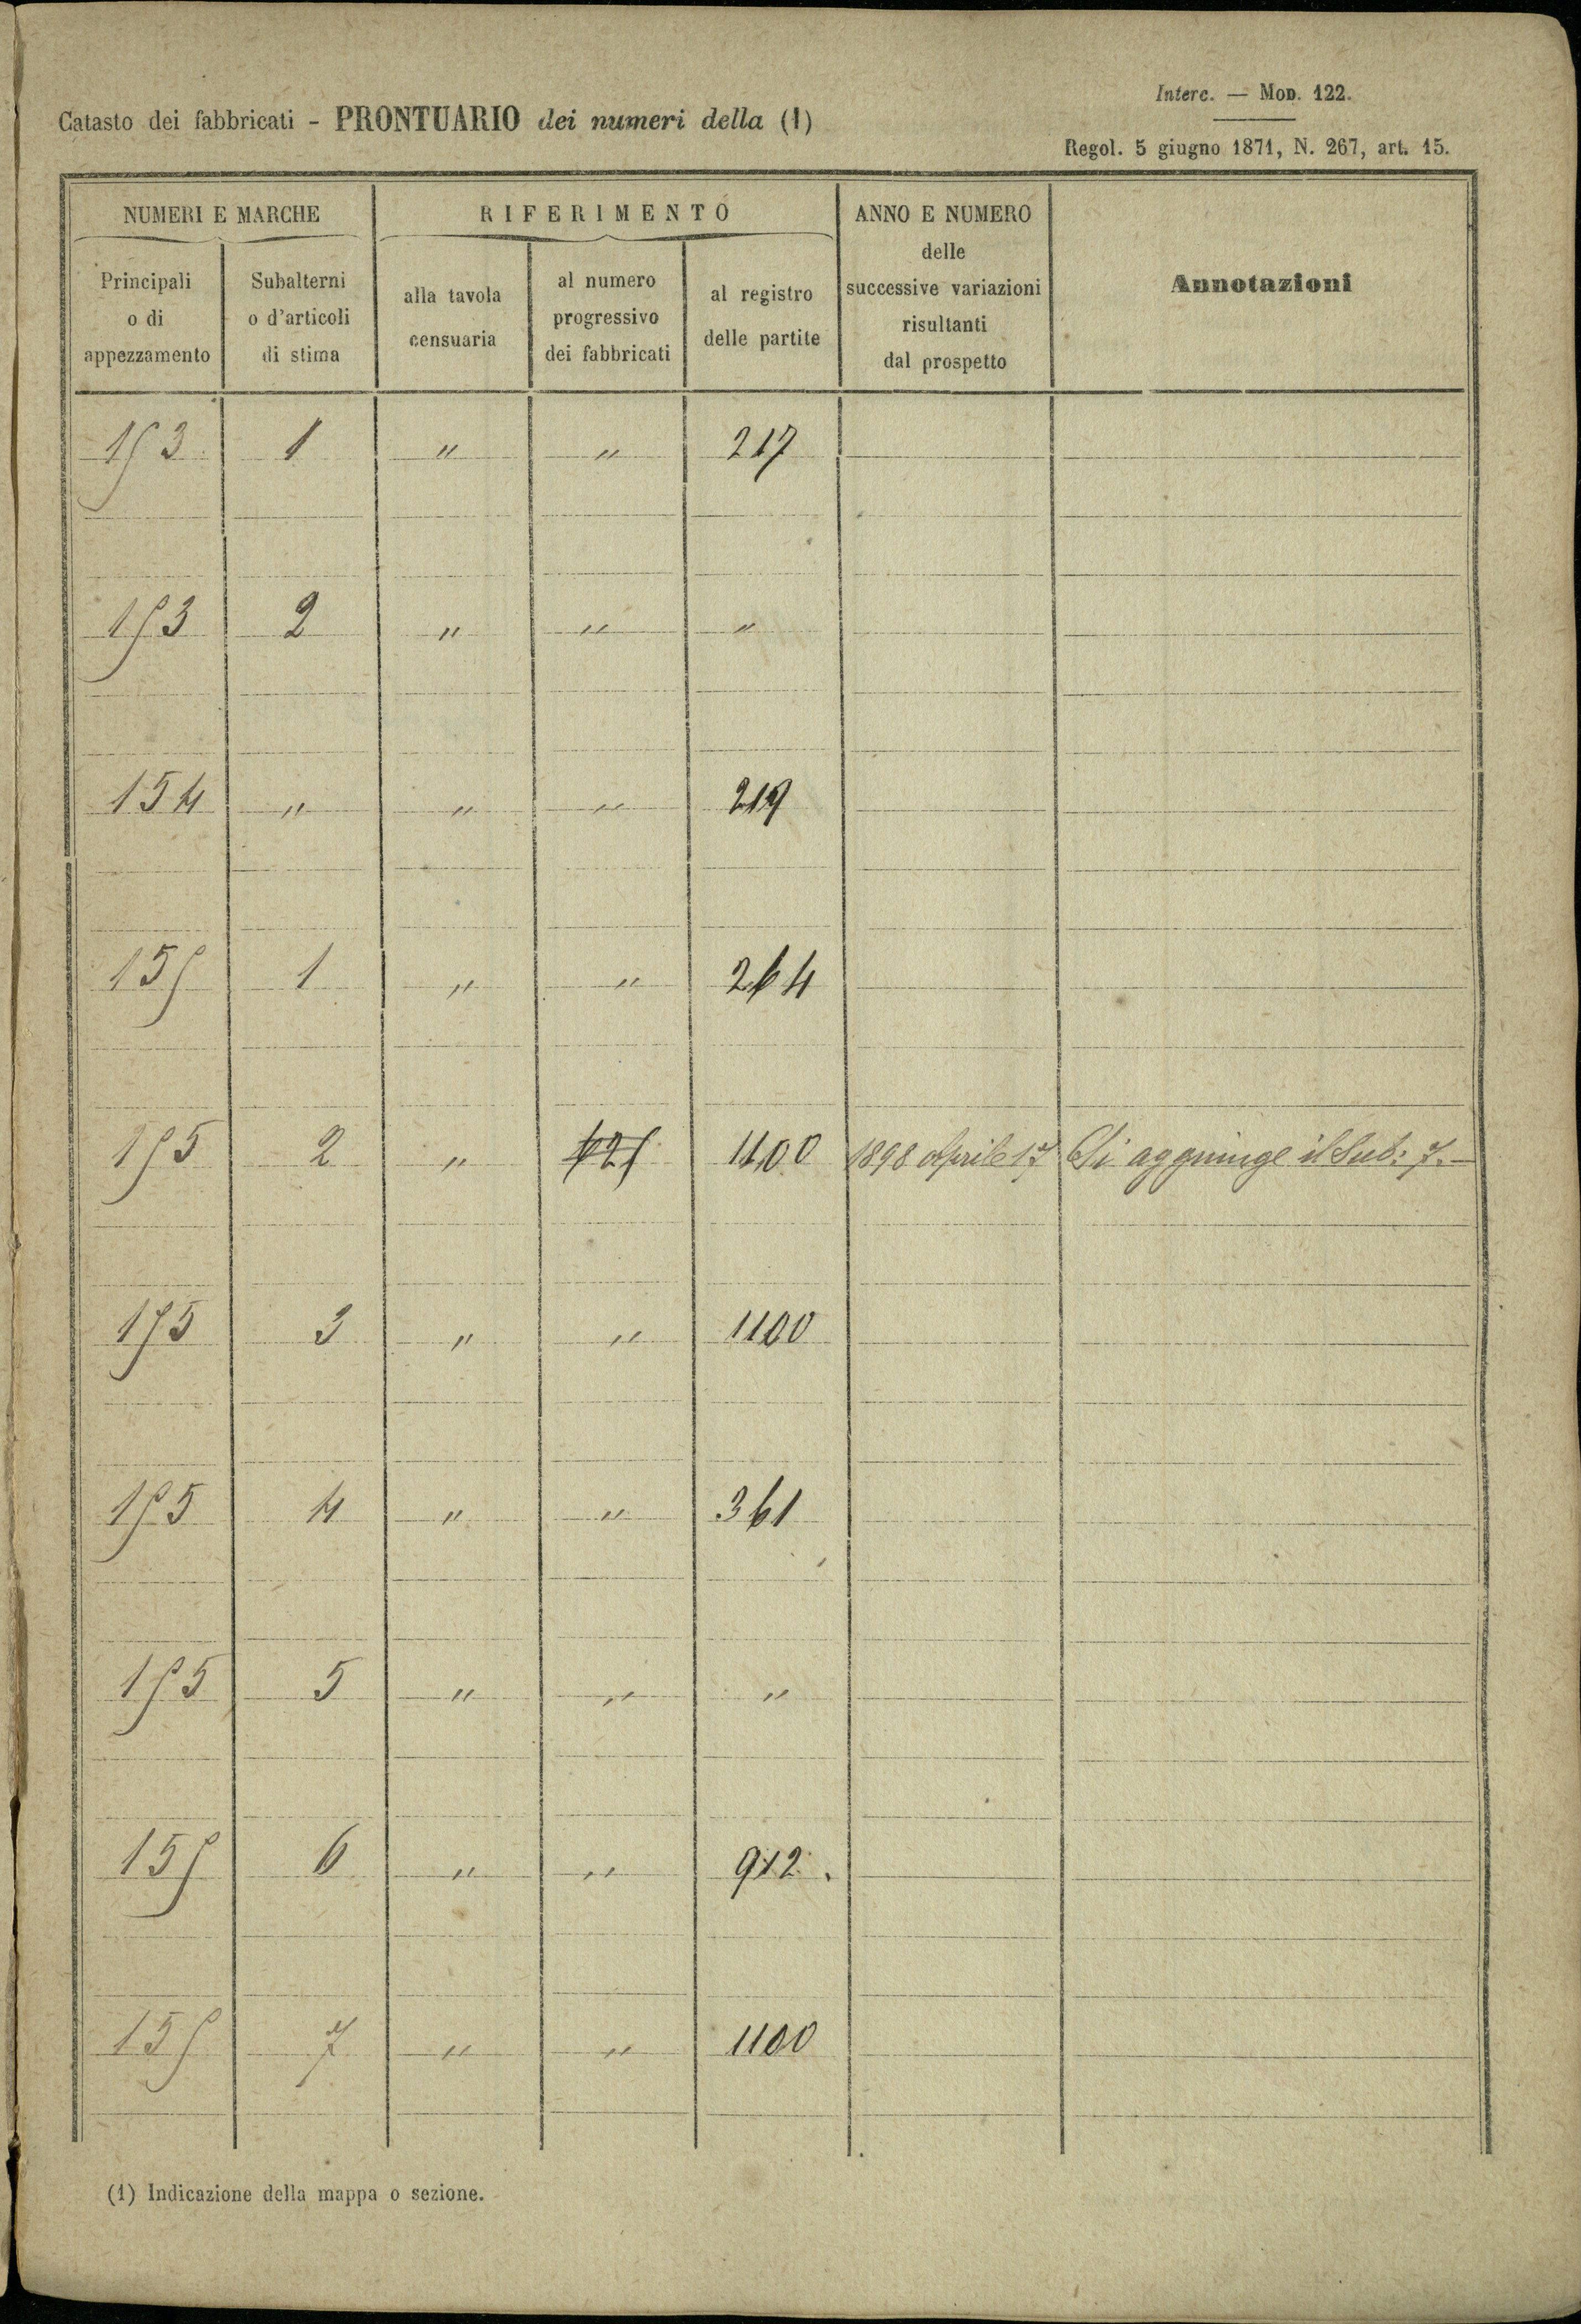 Interc. — Mod. 122.
Catasto dei fabbricati - PRONTUARIO dei numeri della (1)
Regol. 5 giugno 1871, N. 267, art. 15.
NUMERI E MARCHE RIFERIMENTO ANNO E NUMERO delle successive variazioni risultanti dal prospetto Annotazioni
Principali o di appezzamento Subalterni o d'articoli di stima alla tavola censuaria al numero progressivo dei fabbricati al registro delle partite
153 1 " " 217
153 2 " " "
154 " " " 219
155 1 " " 264
155 2 " 625 1100 1898 Aprile 17 Si aggiunge il Sub: 7.—
155 3 " " 1100
155 4 " " 361
155 5 " " "
155 6 " " 912.
155 7 " " 1100
(1) Indicazione della mappa o sezione.